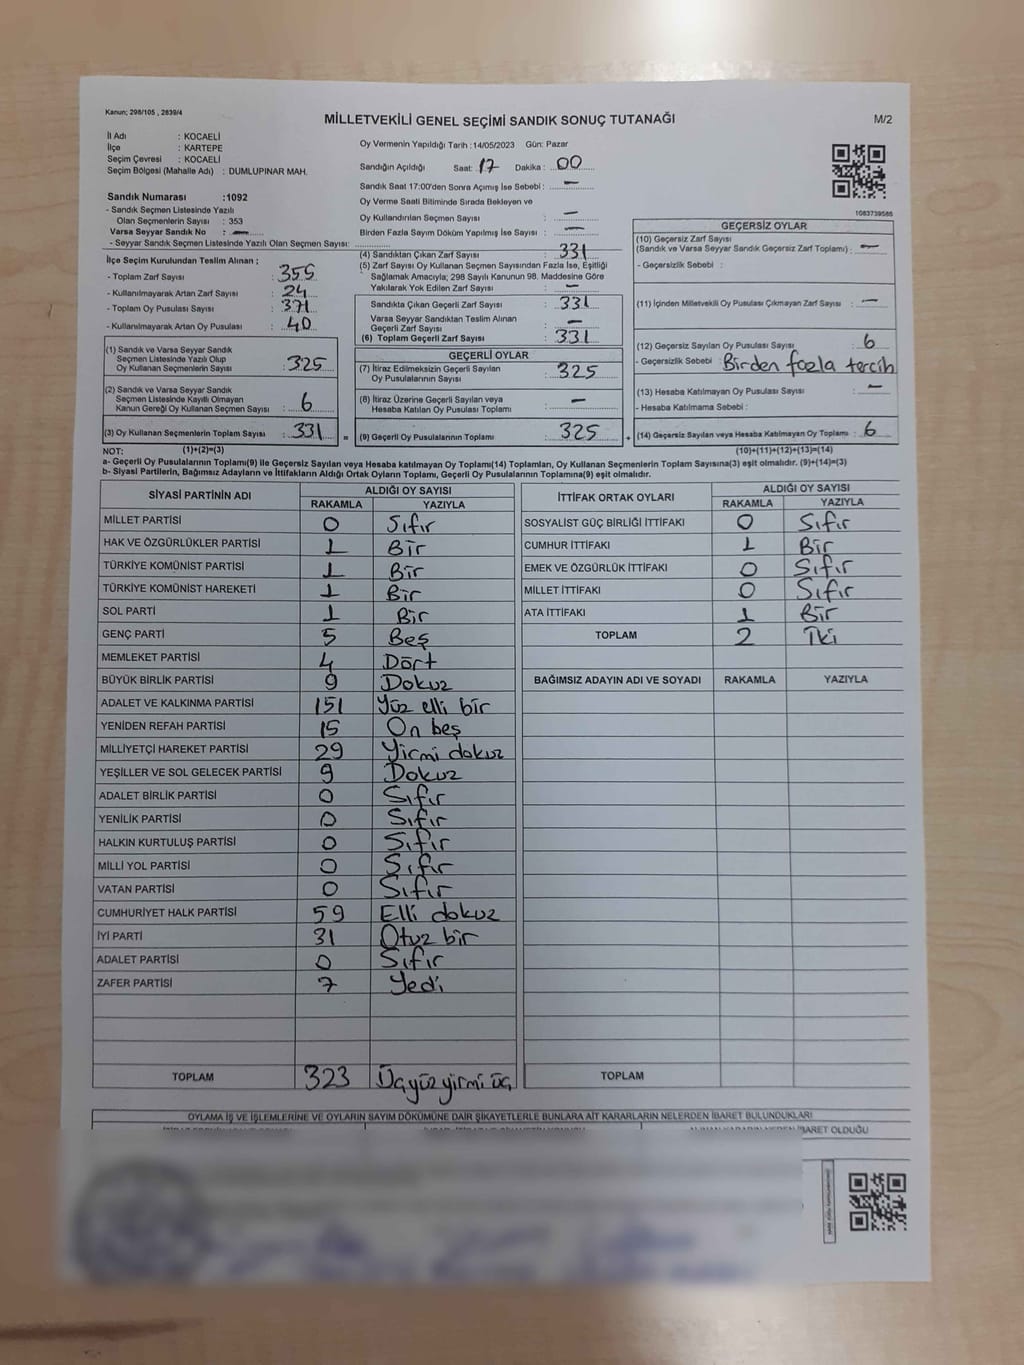 Kanun; 298/105 , 2839/4
MİLLETVEKİLİ GENEL SEÇİMİ SANDIK SONUÇ TUTANAĞI
M/2
İl Adı : KOCAELİ
İlçe : KARTEPE
Seçim Çevresi : KOCAELİ
Seçim Bölgesi (Mahalle Adı) : DUMLUPINAR MAH.
Sandık Numarası :1092
- Sandık Seçmen Listesinde Yazılı
Olan Seçmenlerin Sayısı : 353
Varsa Seyyar Sandık No : —
- Seyyar Sandık Seçmen Listesinde Yazılı Olan Seçmen Sayısı:
İlçe Seçim Kurulundan Teslim Alınan ;
- Toplam Zarf Sayısı : 355
- Kullanılmayarak Artan Zarf Sayısı : 24
- Toplam Oy Pusulası : 371
- Kullanılmayarak Artan Oy Pusulası : 40
(1) Sandık ve Varsa Seyyar Sandık
Seçmen Listesinde Yazılı Olup
Oy Kullanan Seçmenlerin Sayısı : 325
(2) Sandık ve Varsa Seyyar Sandık
Seçmen Listesinde Kayıtlı Olmayan
Kanun Gereği Oy Kullanan Seçmen Sayısı : 6
(3) Oy Kullanan Seçmenlerin Toplam Sayısı : 331
Oy Vermenin Yapıldığı Tarih :14/05/2023 Gün: Pazar
Sandığın Açıldığı Saat: 17 Dakika : 00
Sandık Saat 17:00'den Sonra Açımış İse Sebebi : —
Oy Verme Saati Bitiminde Sırada Bekleyen ve
Oy Kullandırılan Seçmen Sayısı : —
Birden Fazla Sayım Döküm Yapılmış İse Sayısı : —
(4) Sandıktan Çıkan Zarf Sayısı : 331
(5) Zarf Sayısı Oy Kullanan Seçmen Sayısından Fazla İse, Eşitliği
Sağlamak Amacıyla; 298 Sayılı Kanunun 98. Maddesine Göre
Yakılarak Yok Edilen Zarf Sayısı : —
Sandıkta Çıkan Geçerli Zarf Sayısı : 331
Varsa Seyyar Sandıktan Teslim Alınan
Geçerli Zarf Sayısı : —
(6) Toplam Geçerli Zarf Sayısı : 331
GEÇERLİ OYLAR
(7) İtiraz Edilmeksizin Geçerli Sayılan
Oy Pusulalarının Sayısı : 325
(8) İtiraz Üzerine Geçerli Sayılan veya
Hesaba Katılan Oy Pusulası Toplamı : —
= (9) Geçerli Oy Pusulalarının Toplamı : 325 +
1083739585
GEÇERSİZ OYLAR
(10) Geçersiz Zarf Sayısı
(Sandık ve Varsa Seyyar Sandık Geçersiz Zarf Toplamı) : —
- Geçersizlik Sebebi :
(11) İçinden Milletvekili Oy Pusulası Çıkmayan Zarf Sayısı : —
(12) Geçersiz Sayılan Oy Pusulası Sayısı : 6
- Geçersizlik Sebebi : Birden fazla tercih
(13) Hesaba Katılmayan Oy Pusulası Sayısı : —
- Hesaba Katılmama Sebebi :
(14) Geçersiz Sayılan veya Hesaba Katılmayan Oy Toplamı : 6
NOT: (1)+(2)=(3) (10)+(11)+(12)+(13)=(14)
a- Geçerli Oy Pusulalarının Toplamı(9) ile Geçersiz Sayılan veya Hesaba katılmayan Oy Toplamı(14) Toplamları, Oy Kullanan Seçmenlerin Toplam Sayısına(3) eşit olmalıdır. (9)+(14)=(3)
b- Siyasi Partilerin, Bağımsız Adayların ve İttifakların Aldığı Ortak Oyların Toplamı, Geçerli Oy Pusulalarının Toplamına(9) eşit olmalıdır.
SİYASİ PARTİNİN ADI ALDIĞI OY SAYISI
RAKAMLA YAZIYLA
MİLLET PARTİSİ 0 Sıfır
HAK VE ÖZGÜRLÜKLER PARTİSİ 1 Bir
TÜRKİYE KOMÜNİST PARTİSİ 1 Bir
TÜRKİYE KOMÜNİST HAREKETİ 1 Bir
SOL PARTİ 1 Bir
GENÇ PARTİ 5 Beş
MEMLEKET PARTİSİ 4 Dört
BÜYÜK BİRLİK PARTİSİ 9 Dokuz
ADALET VE KALKINMA PARTİSİ 151 Yüz elli bir
YENİDEN REFAH PARTİSİ 15 On beş
MİLLİYETÇİ HAREKET PARTİSİ 29 Yirmi dokuz
YEŞİLLER VE SOL GELECEK PARTİSİ 9 Dokuz
ADALET BİRLİK PARTİSİ 0 Sıfır
YENİLİK PARTİSİ 0 Sıfır
HALKIN KURTULUŞ PARTİSİ 0 Sıfır
MİLLİ YOL PARTİSİ 0 Sıfır
VATAN PARTİSİ 0 Sıfır
CUMHURİYET HALK PARTİSİ 59 Elli dokuz
İYİ PARTİ 31 Otuz bir
ADALET PARTİSİ 0 Sıfır
ZAFER PARTİSİ 7 Yedi
TOPLAM 323 Üçyüz yirmi üç
İTTİFAK ORTAK OYLARI ALDIĞI OY SAYISI
RAKAMLA YAZIYLA
SOSYALİST GÜÇ BİRLİĞİ İTTİFAKI 0 Sıfır
CUMHUR İTTİFAKI 1 Bir
EMEK VE ÖZGÜRLÜK İTTİFAKI 0 Sıfır
MİLLET İTTİFAKI 0 Sıfır
ATA İTTİFAKI 1 Bir
TOPLAM 2 İki
BAĞIMSIZ ADAYIN ADI VE SOYADI RAKAMLA YAZIYLA
TOPLAM
OYLAMA İŞ VE İŞLEMLERİNE VE OYLARIN SAYIM DÖKÜMÜNE DAİR ŞİKAYETLERLE BUNLARA AİT KARARLARIN NELERDEN İBARET BULUNDUKLARI
BARET OLDUĞU